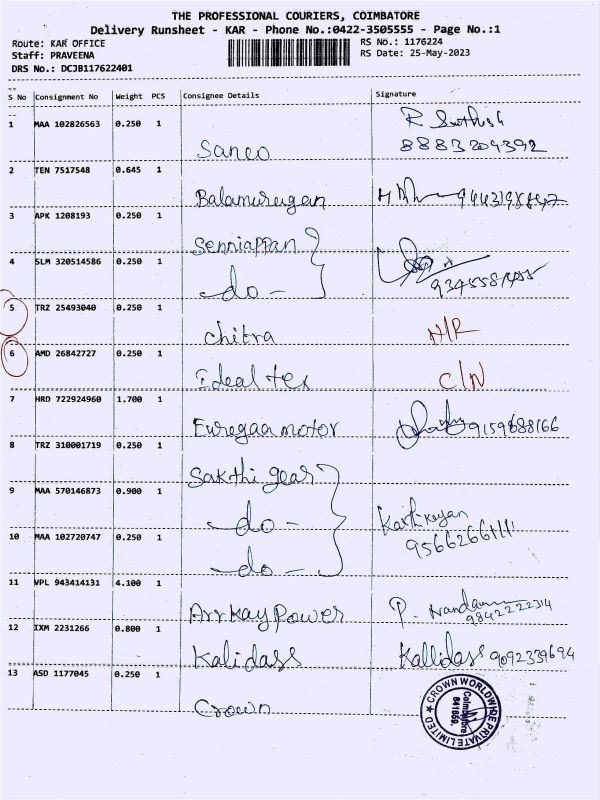 THE PROFESSIONAL COURIERS, COIMBATORE
Delivery Runsheet - KAR - Phone No.:0422-3505555 - Page No.:1
Route: KAR OFFICE RS No.: 1176224
Staff: PRAVEENA RS Date: 25-May-2023
DRS No.: DCJB117622401
S No Consignment No Weight PCS Consignee Details Signature
1 MAA 102826563 0.250 1 Saneo R Sathish
8883204392
2 TEN 7517548 0.645 1 Balamurugan
3 APK 1208193 0.250 1 Senniappan
4 SLM 320514586 0.250 1 -do-
5 TRZ 25493040 0.250 1 chitra N/R
6 AMD 26842727 0.250 1 Ideal tex C/N
7 HRD 722924960 1.700 1 Euregaa motor 9159688166
8 TRZ 310001719 0.250 1 Sakthi gear
9 MAA 570146873 0.900 1 -do- Karthikeyan
10 MAA 102720747 0.250 1 -do-
11 VPL 943414131 4.100 1 Arrkay Power P. 9842222314
12 IXM 2231266 0.800 1 Kalidass Kallidass 9092339694
13 ASD 1177045 0.250 1 Crown
CROWN WORLDWIDE PRIVATE LIMITED
Coimbatore
641659.